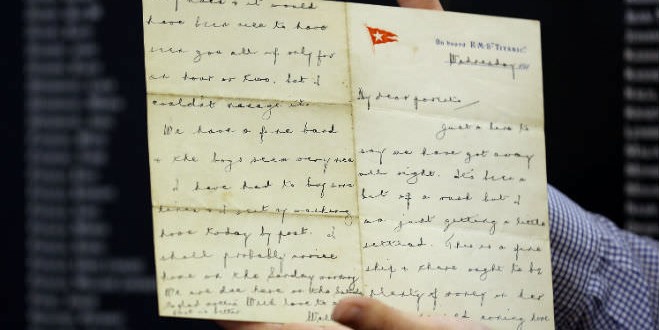 On board R.M.S. "TITANIC".
Wednesday 191
My dear parents,
Just a line to
say we have got away
all right. It's been a
bit of a rush but I
am just getting a little
settled. This is a fine
ship & there ought to be
plenty of money on her
missed coming home
& it would
have been nice to have
seen you all if only for
an hour or two, but I
couldn't manage it.
We have a fine band
& the boys seem very nice
I have had to buy some
linen & I sent my washing
home today by post. I
shall probably arrive
home on the Sunday morning
We are due here on the
glad mother's With love to a
foot is better